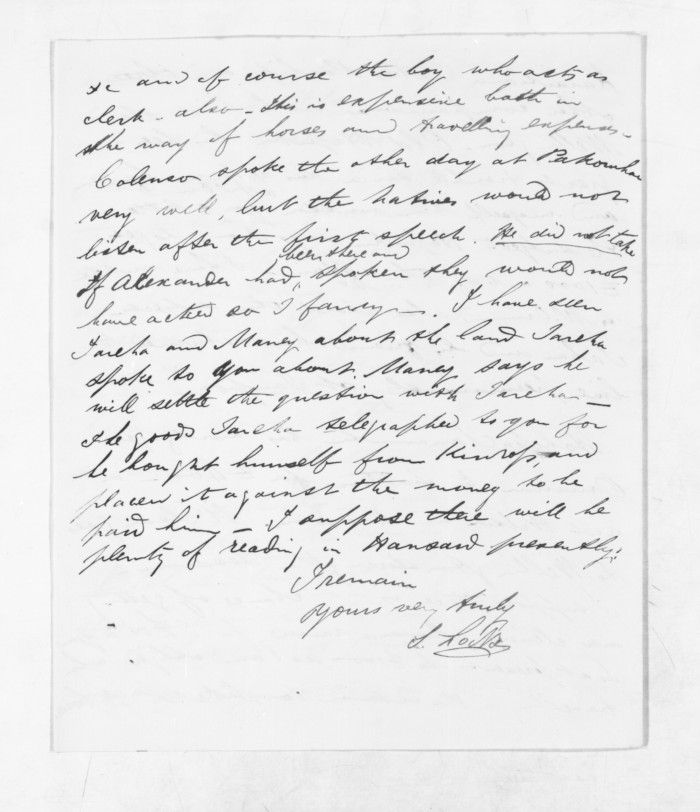 &c and of course the boy who acts as
clerk - also - this is expensive both in
the way of horses and travelling expenses -
Colenso spoke the other day at Pakowhai
very well, but the natives would not
listen after the first speech. He did not take
been there and
If Alexander had, spoken they would not
have acted so I fancy -. I have seen
Tareha and Maney about the land Tareha
spoke to you about. Maney says he
will settle the question with Tareha -
The goods Tareha telegraphed to you for
he bought himself from Kinross, and
placed it against the money to be
paid him - I suppose there will be
plenty of reading in Hansard presently.
I remain
Yours very truly
S. Locke